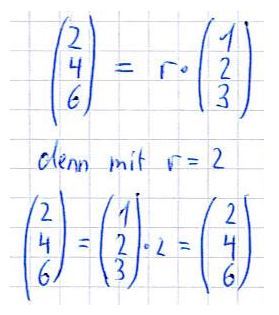 (2 4 6) = r · (1 2 3)
denn mit r = 2
(2 4 6) = (1 2 3) · 2 = (2 4 6)